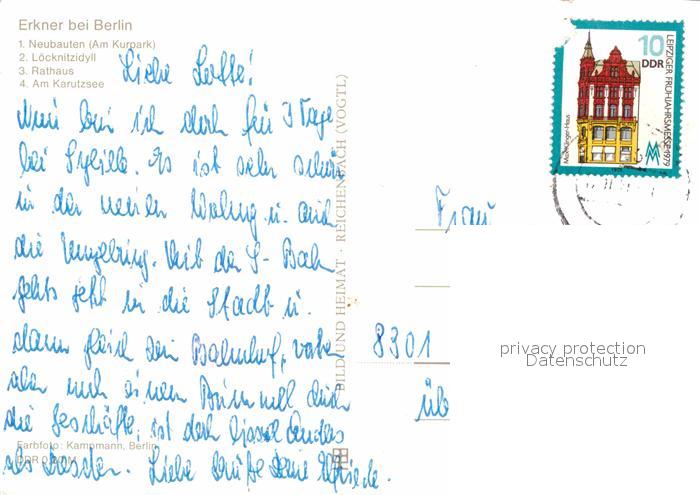 Erkner bei Berlin
1. Neubauten (Am Kurpark)
2. Löcknitzidyll
3. Rathaus
4. Am Karutzsee
Liebe Lotte!
Nun bin ich doch für 3 Tage
bei Sybille. Es ist sehr schön
in der neuen Wohng u. auch
die Umgebung. Mit der S-Bah
gehts jetzt in die Stadt u.
dann gleich zum Bahnhof, vorher
aber noch einen Bummel durch
die Geschäfte, ist doch anders
als Dresden. Liebe Grüße Deine
Farbfoto: Kampmann, Berlin
DDR
BILD UND HEIMAT · REICHENBACH (VOGTL)
Frau
8301
üb
privacy protection
Datenschutz
10
DDR
LEIPZIGER FRÜHJAHRSMESSE 1979